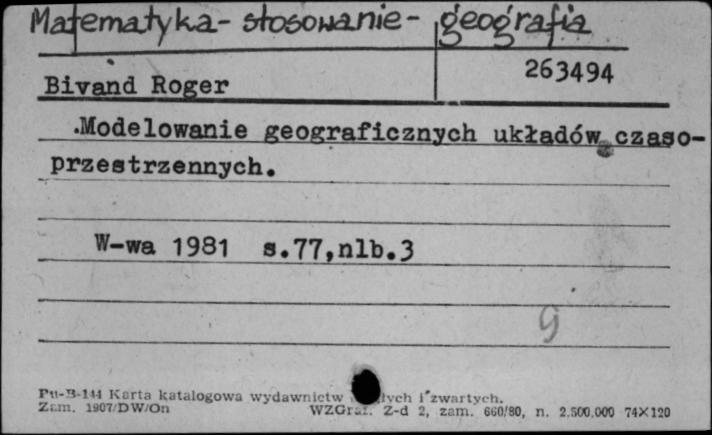 Matematyka - stosowanie - geografia
263494
Bivand Roger
.Modelowanie geograficznych układów czaso-
przestrzennych.
W-wa 1981 s.77,nlb.3
g
Pu-B-144 Karta katalogowa wydawnictw i zwartych.
Zam. 1907/DW/On WZGraf. Z-d 2, zam. 660/80, n. 2.500.000 74×120